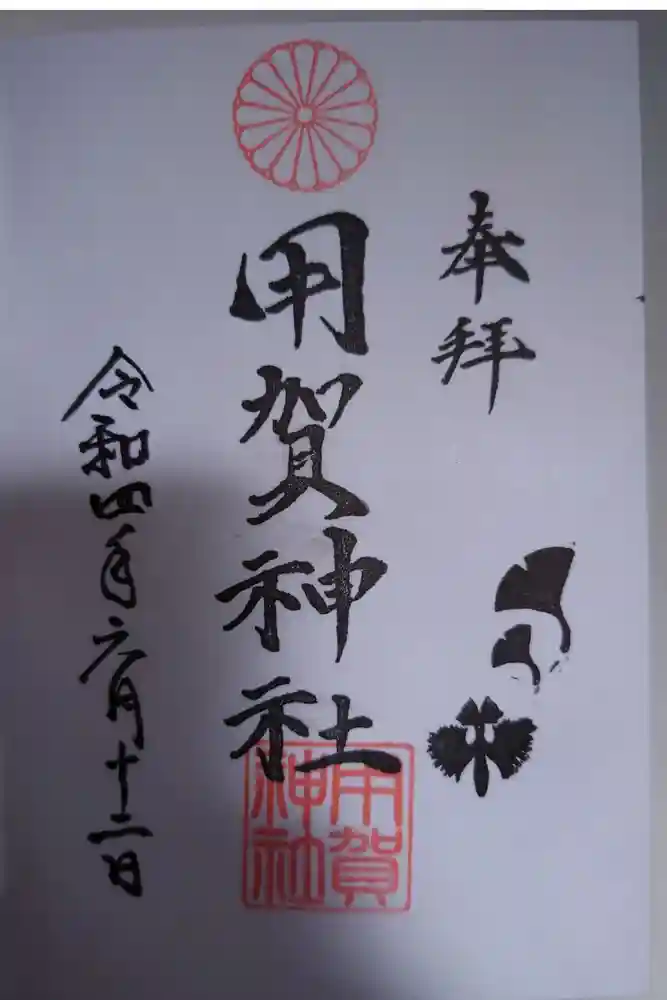 奉拝
用賀神社
令和四年六月十二日
用賀
神社